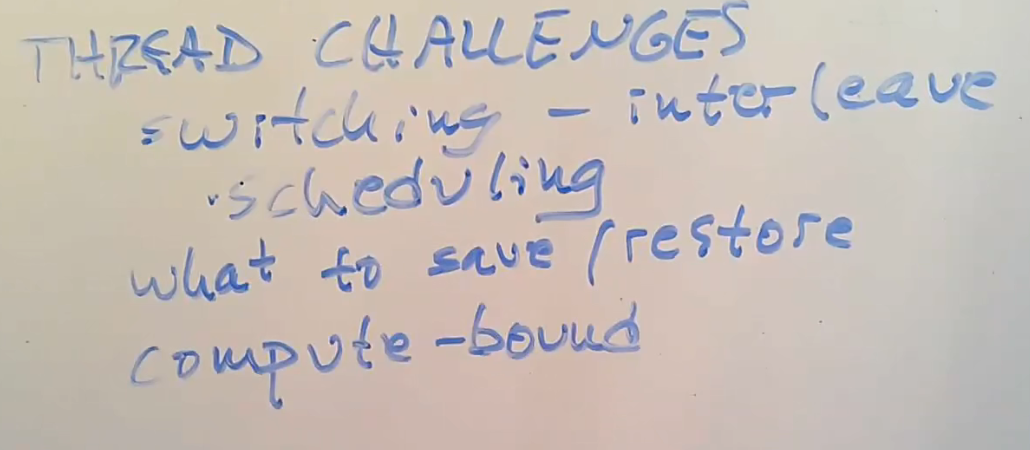 THREAD CHALLENGES
switching - interleave
·scheduling
what to save/restore
compute-bound